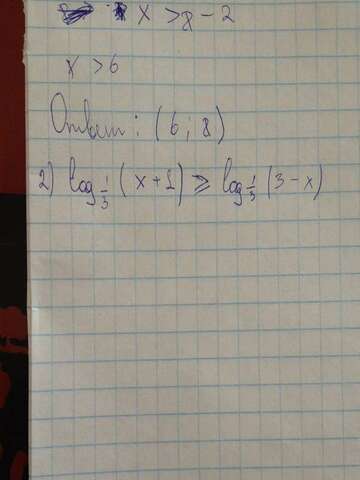 x > 8 - 2
x > 6
Ответ: (6; 8)
2) log_{1/3} (x + 1) ⩾ log_{1/3} (3 - x)